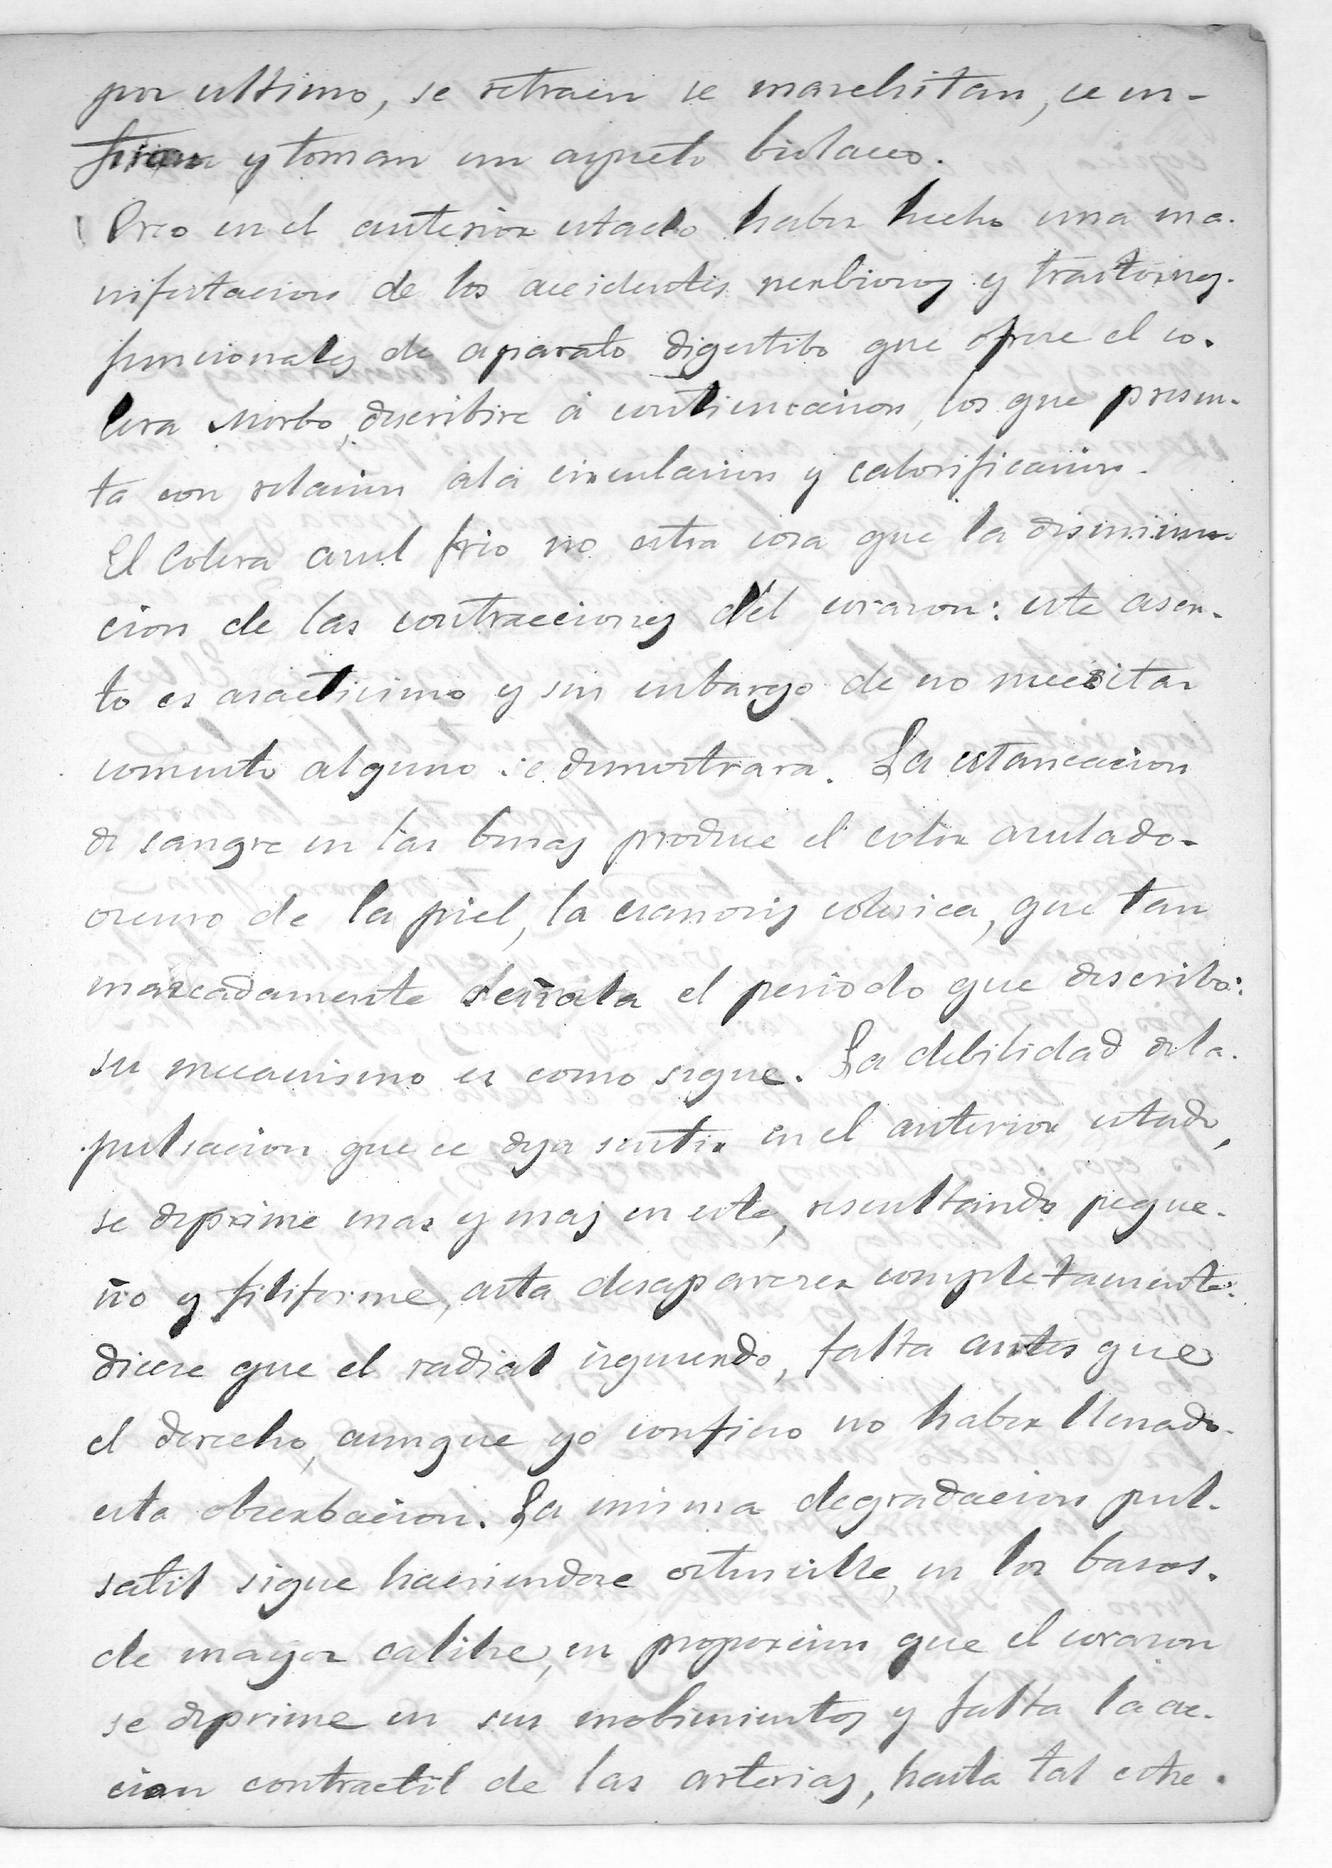 por ultimo, se retraen se marchitan, se en-
frian y toman un aspecto biolaceo.
Creo en el anterior estado haber hecho una ma-
nifestacion de los accidentes nerbiosos y trastornos
funcionales de aparato digestibo que ofrece el co-
lera Morbo, describire á continuacion, los que presen-
ta con relacion ala circulacion y calorificacion.
El Colera azul frio no es otra cosa que la disminu-
cion de las contracciones del corazon: este aser-
to es exactisimo y sin enbargo de no necesitar
comento alguno se demostrara. La estancacion
de sangre en las benas produce el color azulado-
oscuro de la piel, la cianosis colerica, que tan
marcadamente señala el periodo que describo:
su mecanismo es como sigue. La debilidad de la
pulsacion que se deja sentir en el anterior estado,
se deprime mas y mas en este, resultando peque-
ño y filiforme, asta desaparecer completamente:
dicese que el radial izquierdo, falta antes que
el derecho, aunque yo confieso no haber llenado
esta obserbacion. La misma degradacion pul-
satil sigue haciendose ostensible, en los basos
de mayor calibre, en proporcion que el corazon
se deprime en sus mobimientos y falta la ac-
cion contractil de las arterias, hasta tal estre